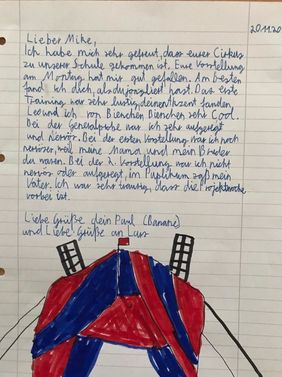 20.11.20
Lieber Mike,
Ich habe mich sehr gefreut, dass eurer Cirkus
zu unserer Schule gekommen ist. Eure Vorstellung
am Montag hat mir gut gefallen. Am besten
fand ich dich, als du jongliert hast. Das erste
Training war sehr lustig, deinen Akzent fanden
Leo und ich von Bienchen Bienchen sehr Cool.
Bei der Generalprobe war ich sehr aufgeregt
und nervös. Bei der ersten Vorstellung war ich noch
nervöser, weil meine Mama und mein Bruder
da waren. Bei der 2. Vorstellung war ich nicht
nervös oder aufgeregt, im Puplikum saß mein
Vater. Ich war sehr traurig, dass die Projektwoche
vorbei ist.
Liebe Grüße dein Paul (Banane)
und Liebe Grüße an Lars